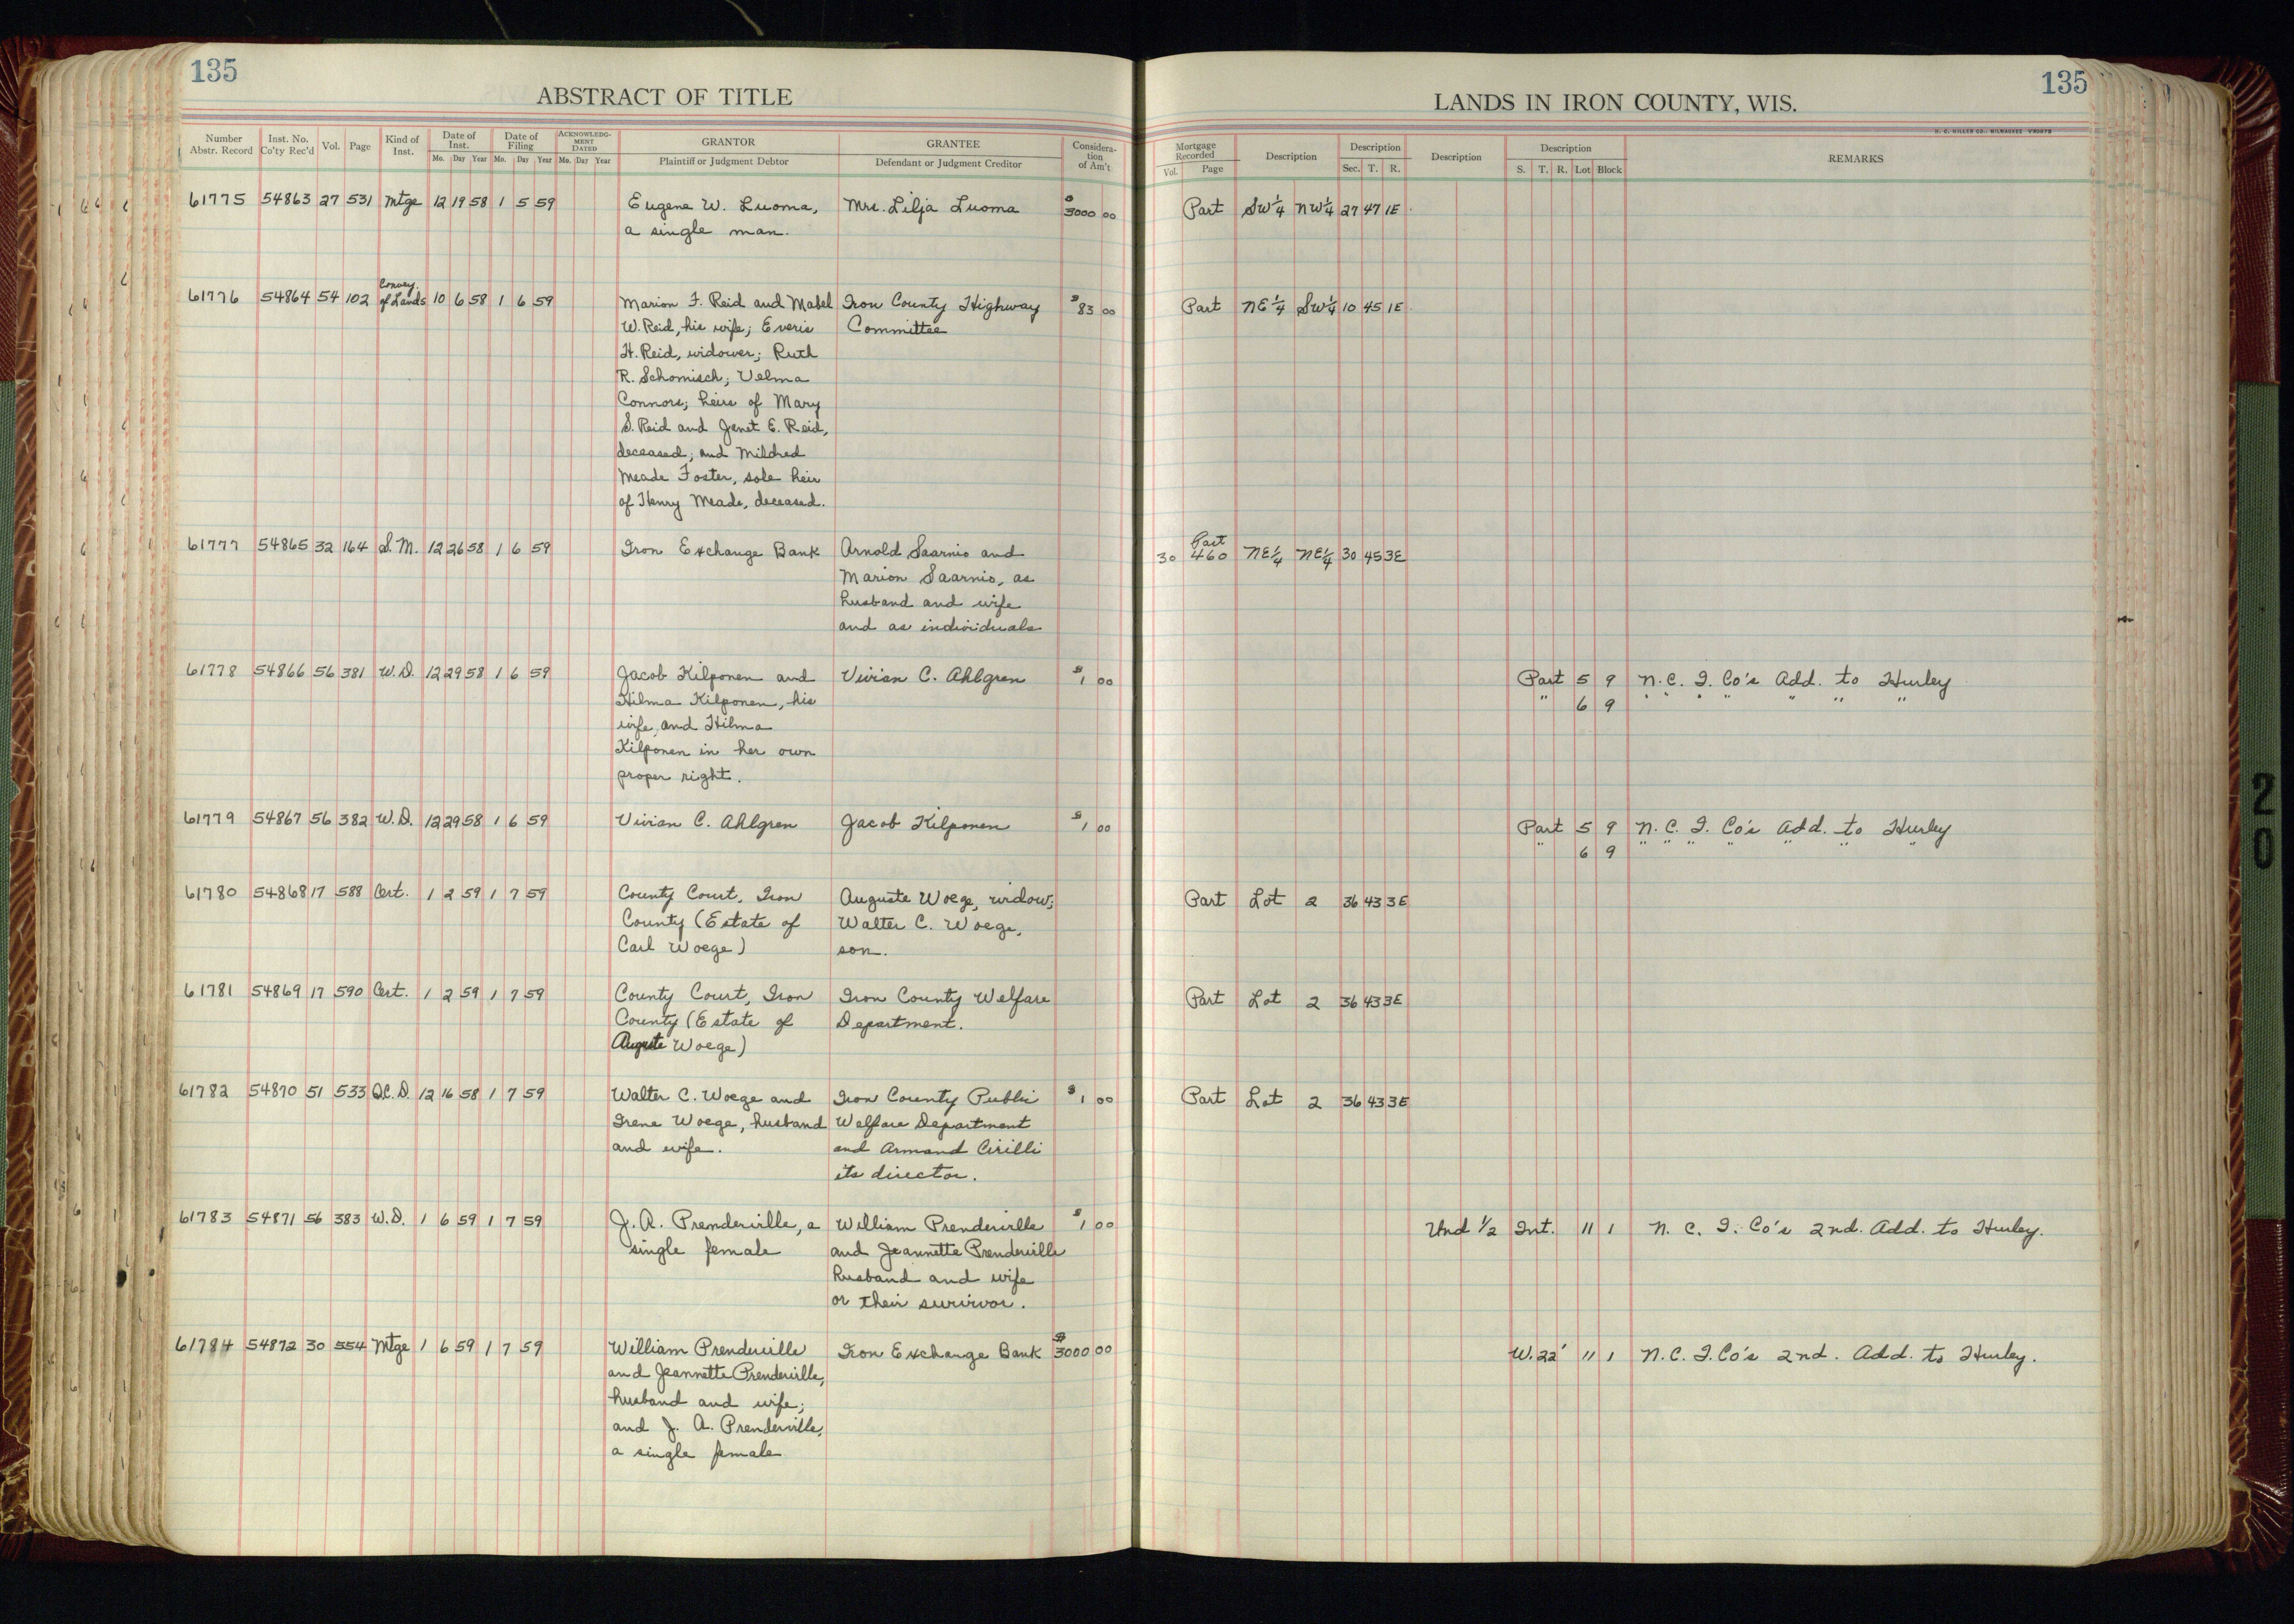 135
ABSTRACT OF TITLE
Number Abstr. Record | Inst. No. Co'ty Rec'd | Vol. | Page | Kind of Inst. | Date of Inst. Mo. Day Year | Date of Filing Mo. Day Year | ACKNOWLEDGMENT DATED Mo. Day Year | GRANTOR Plaintiff or Judgment Debtor | GRANTEE Defendant or Judgment Creditor | Consideration of Am't
61775 54863 27 531 Mtge 12 19 58 1 5 59 Eugene W. Luoma, Mrs. Lilja Luoma $3000 00
a single man.
61776 54864 54 102 Convey. of Lands 10 6 58 1 6 59 Marion F. Reid and Mabel Iron County Highway $83 00
W. Reid, his wife; Everis Committee
H. Reid, widower; Ruth
R. Schomisch; Velma
Connors; heirs of Mary
S. Reid and Janet E. Reid,
deceased; and Mildred
Meade Foster, sole heir
of Henry Meade, deceased.
61777 54865 32 164 S.M. 12 26 58 1 6 59 Iron Exchange Bank Arnold Saarnio and
Marion Saarnio, as
husband and wife
and as individuals
61778 54866 56 381 W.D. 12 29 58 1 6 59 Jacob Kilponen and Vivian C. Ahlgren $1 00
Hilma Kilponen, his
wife, and Hilma
Kilponen in her own
proper right.
61779 54867 56 382 W.D. 12 29 58 1 6 59 Vivian C. Ahlgren Jacob Kilponen $1 00
61780 54868 17 588 Cert. 1 2 59 1 7 59 County Court, Iron Auguste Woege, widow;
County (Estate of Walter C. Woege,
Carl Woege) son.
61781 54869 17 590 Cert. 1 2 59 1 7 59 County Court, Iron Iron County Welfare
County (Estate of Department.
Auguste Woege)
61782 54870 51 533 Q.C.D. 12 16 58 1 7 59 Walter C. Woege and Iron County Public $1 00
Irene Woege, husband Welfare Department
and wife. and Armand Cirilli
its director.
61783 54871 56 383 W.D. 1 6 59 1 7 59 J. A. Prenderville, a William Prenderville $1 00
single female and Jeannette Prenderville
husband and wife
or their survivor.
61784 54872 30 554 Mtge 1 6 59 1 7 59 William Prenderville Iron Exchange Bank $3000 00
and Jeannette Prenderville,
husband and wife;
and J. A. Prenderville,
a single female
135
LANDS IN IRON COUNTY, WIS.
H. C. MILLER CO., MILWAUKEE
Mortgage Recorded Vol. Page | Description | Description Sec. T. R. | Description | Description S. T. R. Lot Block | REMARKS
Part SW¼ NW¼ 27 47 1E
Part NE¼ SW¼ 10 45 1E
Part
30 460 NE¼ NE¼ 30 45 3E
Part 5 9 N. C. I. Co's Add. to Hurley
" 6 9 " " " " " " "
Part 5 9 N. C. I. Co's Add. to Hurley
" 6 9 " " " " " " "
Part Lot 2 36 43 3E
Part Lot 2 36 43 3E
Part Lot 2 36 43 3E
Und ½ Int. 11 1 N. C. I. Co's 2nd. Add. to Hurley.
W. 22' 11 1 N. C. I. Co's 2nd. Add. to Hurley.
20